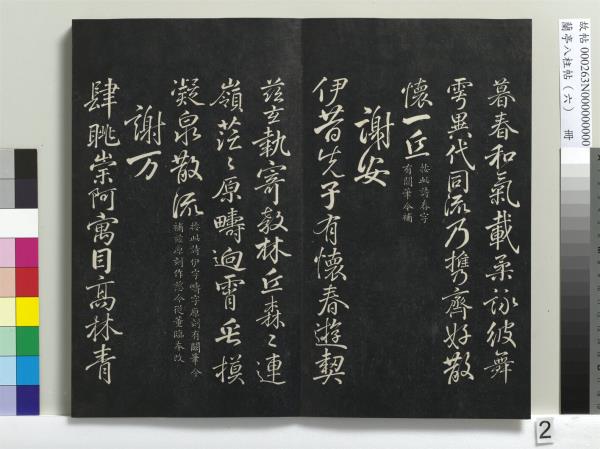 暮春和氣載柔詠彼舞
雩異代同流乃攜齊好散
懷一丘
按此詩春字
有闕筆今補
謝安
伊昔先子有懷春遊契
茲言執寄敖林丘森〻連
嶺茫〻原疇逈霄垂
凝泉散流
按此詩伊字疇字原刻有闕筆今
補茲原刻作悠今從董臨本改
謝万
肆眺崇阿寓目高林青
故帖 000263N000000000
蘭亭八柱帖(六) 冊
2